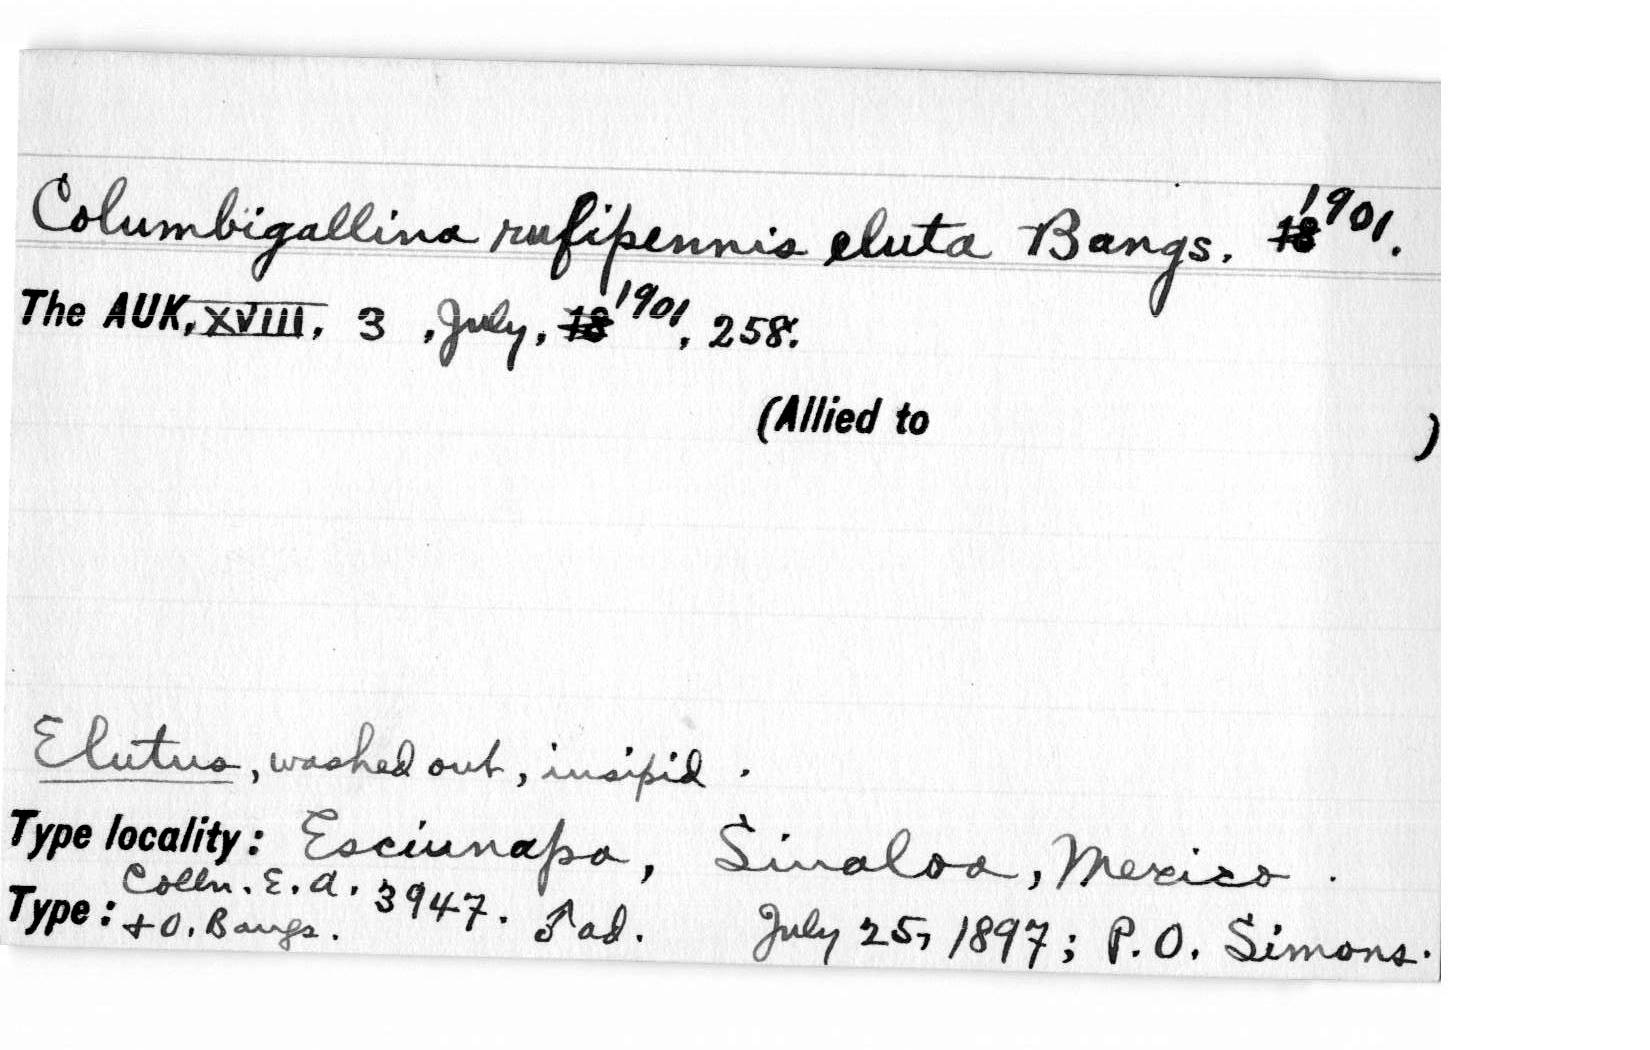 Columbigallina rufipennis eluta Bangs. 18 1901.
The AUK, XVIII, 3, July, 18 1901, 258.
(Allied to )
Elutus, washed out, insipid.
Type locality: Esciunapa, Sinaloa, Mexico.
Type: Colln. E. A. + O. Bangs. 3947. ♂ ad. July 25, 1897; P. O. Simons.